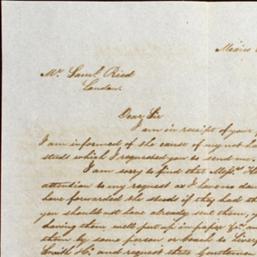 Mexico
Mr. Saml. Ried
London.
Dear Sir
I am in receipt of your
I am informed of the cause of my not ha
studs which I requested you to send me.
I am sorry to find that Messrs. H
attention to my request as I have no dou
have forwarded the studs if they had th
you should not have already sent them,
having them well put up in paper &c. an
them by some person or coach to Liver
Smith &c. and request those Gentlemen